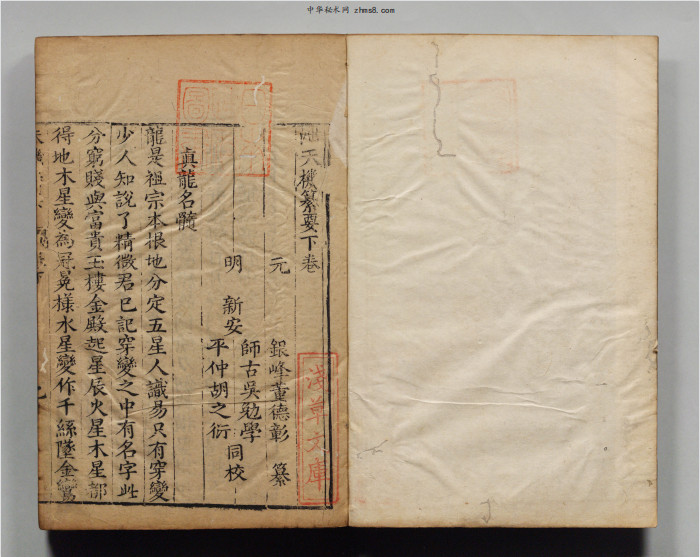 中华秘术网 zhms8.com
天機纂要下卷
元 銀峰董德彰 纂
明 新安 師古吳勉學
平仲胡之衍 同校
真龍名髓
龍是祖宗本根地分定五星人識易只有穿變
少人知說了精微君已記穿變之中有名字此
分窮賤與富貴玉樓金殿起星辰火星木星部
得地木星變為冠冕樣水星變作千絲墜金鸞
文庫